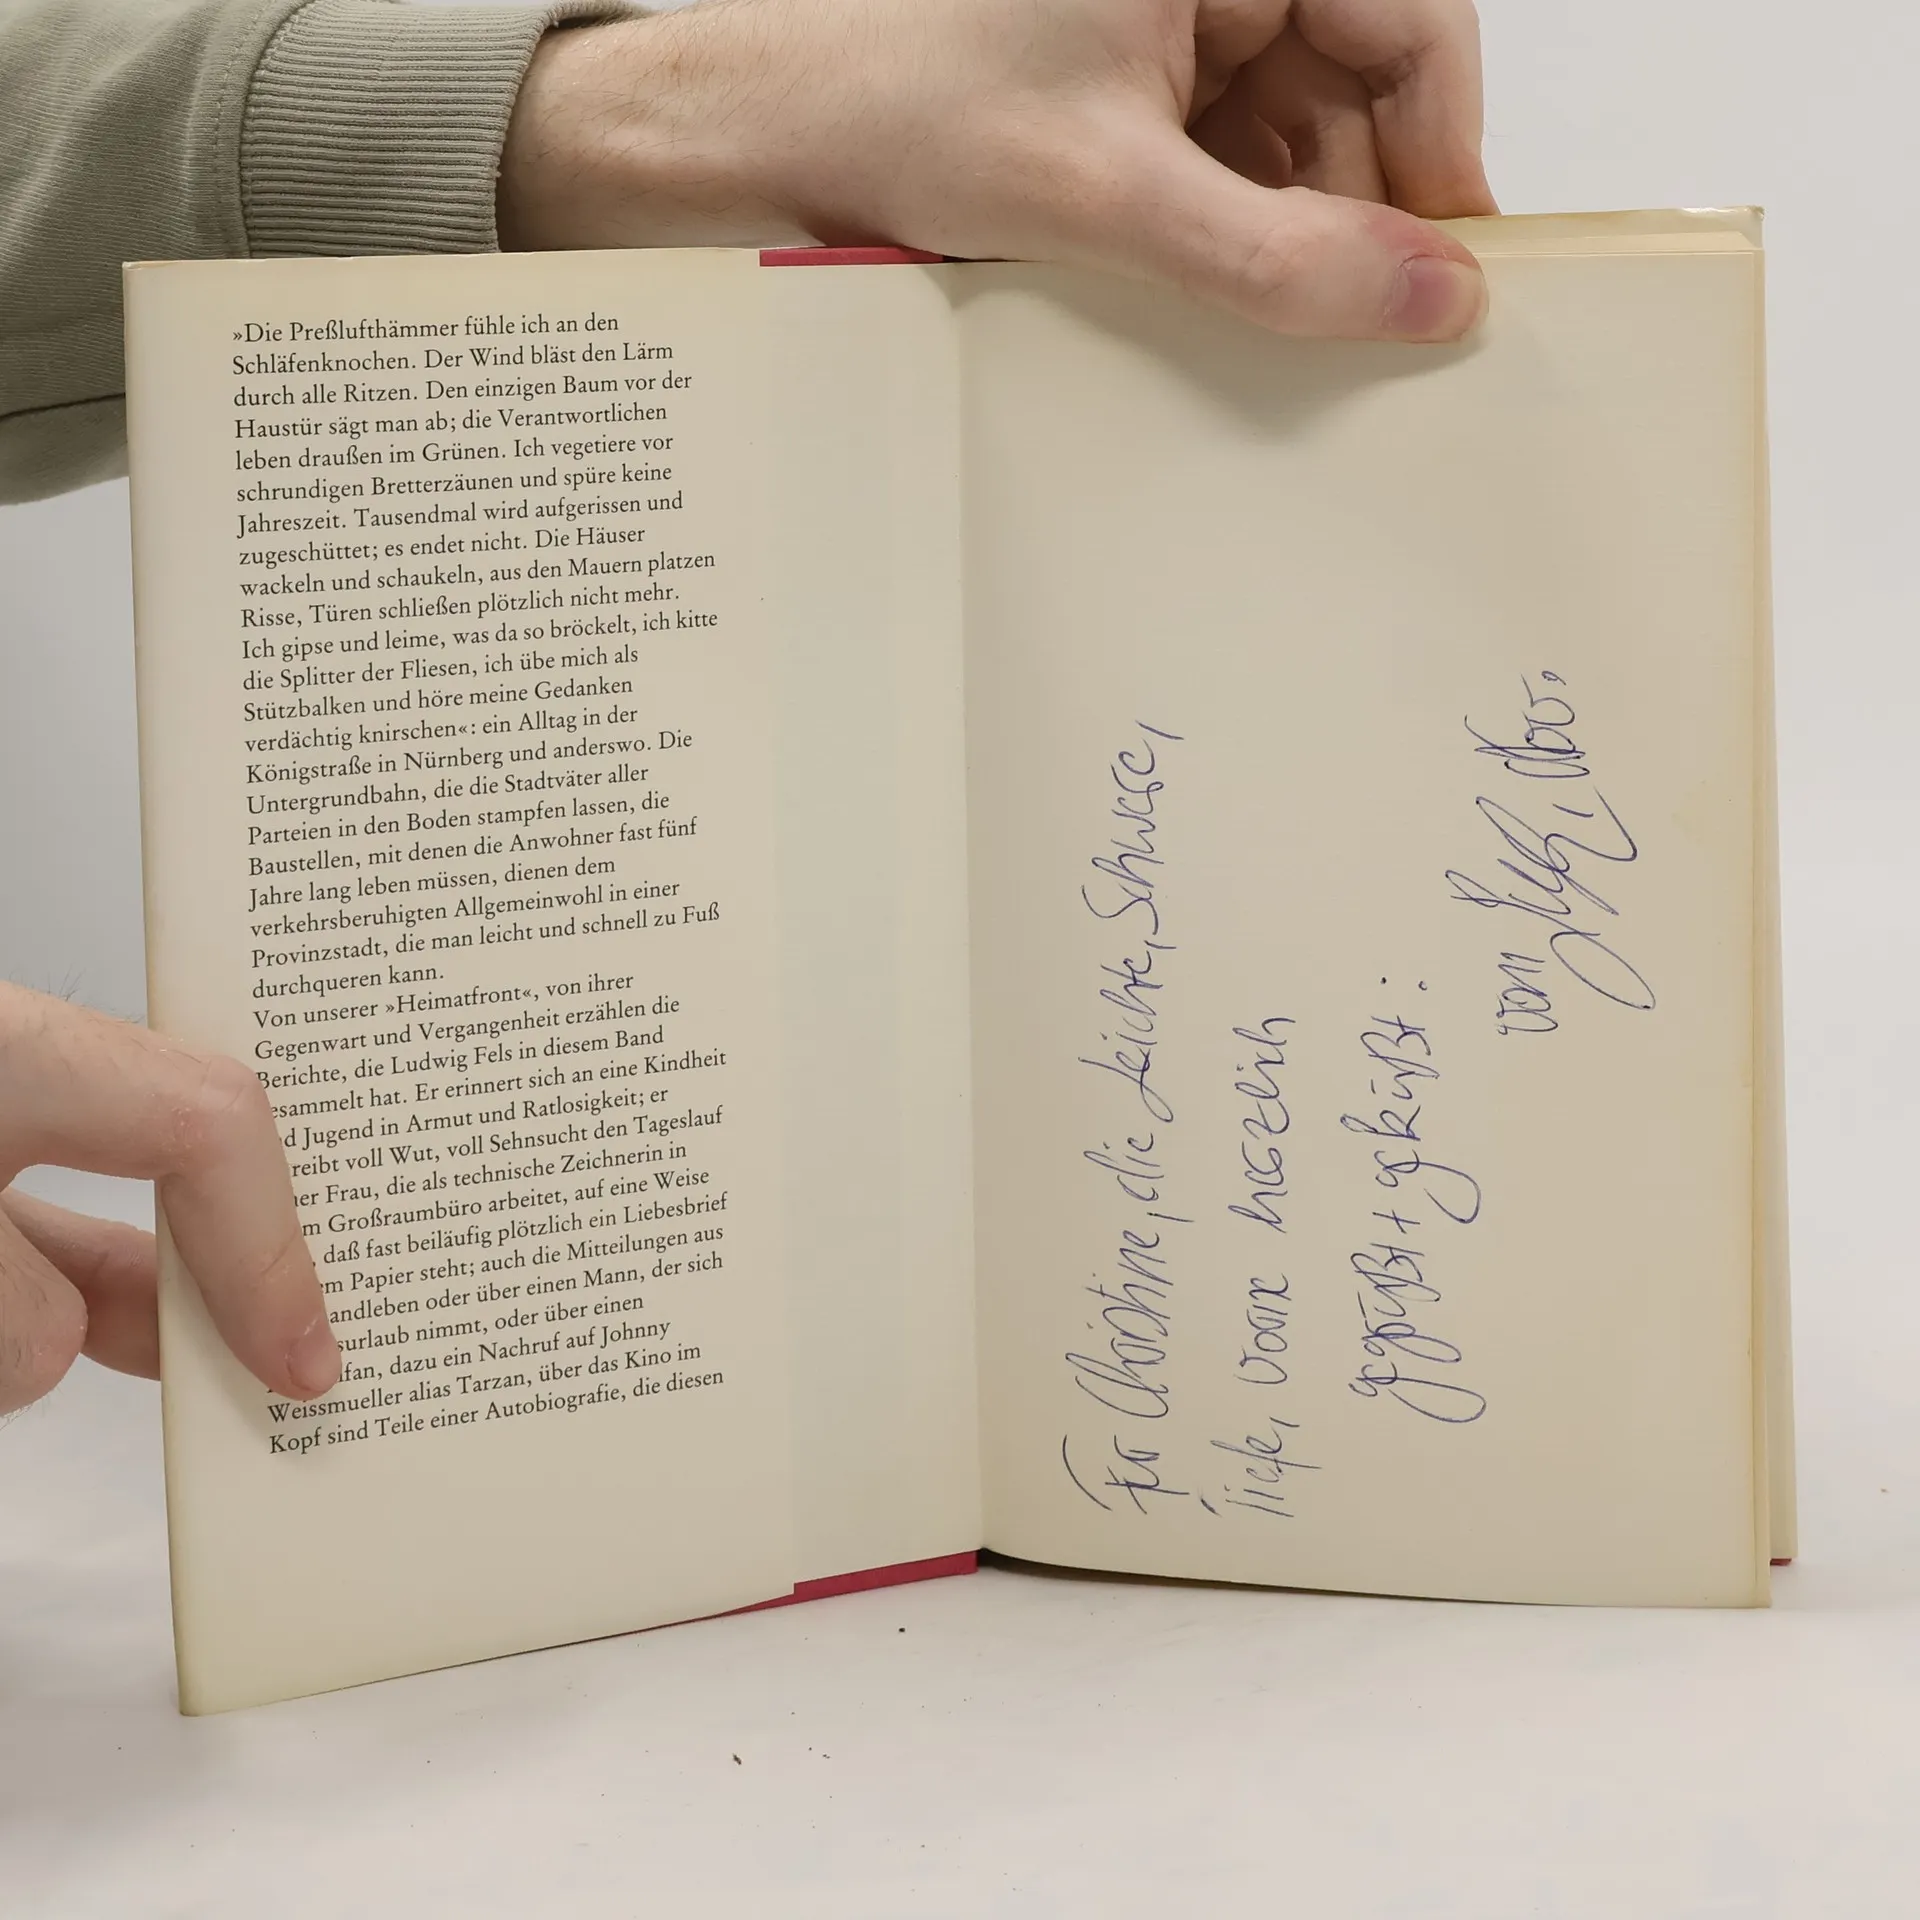 »Die Preßlufthämmer fühle ich an den
Schläfenknochen. Der Wind bläst den Lärm
durch alle Ritzen. Den einzigen Baum vor der
Haustür sägt man ab; die Verantwortlichen
leben draußen im Grünen. Ich vegetiere vor
schrundigen Bretterzäunen und spüre keine
Jahreszeit. Tausendmal wird aufgerissen und
zugeschüttet; es endet nicht. Die Häuser
wackeln und schaukeln, aus den Mauern platzen
Risse, Türen schließen plötzlich nicht mehr.
Ich gipse und leime, was da so bröckelt, ich kitte
die Splitter der Fliesen, ich übe mich als
Stützbalken und höre meine Gedanken
verdächtig knirschen«: ein Alltag in der
Königstraße in Nürnberg und anderswo. Die
Untergrundbahn, die die Stadtväter aller
Parteien in den Boden stampfen lassen, die
Baustellen, mit denen die Anwohner fast fünf
Jahre lang leben müssen, dienen dem
verkehrsberuhigten Allgemeinwohl in einer
Provinzstadt, die man leicht und schnell zu Fuß
durchqueren kann.
Von unserer »Heimatfront«, von ihrer
Gegenwart und Vergangenheit erzählen die
Berichte, die Ludwig Fels in diesem Band
esammelt hat. Er erinnert sich an eine Kindheit
d Jugend in Armut und Ratlosigkeit; er
reibt voll Wut, voll Sehnsucht den Tageslauf
er Frau, die als technische Zeichnerin in
m Großraumbüro arbeitet, auf eine Weise
, daß fast beiläufig plötzlich ein Liebesbrief
m Papier steht; auch die Mitteilungen aus
andleben oder über einen Mann, der sich
surlaub nimmt, oder über einen
fan, dazu ein Nachruf auf Johnny
Weissmueller alias Tarzan, über das Kino im
Kopf sind Teile einer Autobiografie, die diesen
Für Christine, die Leichte, Schwere,
Tiefe, herzlich
gegrüßt + geküßt:
von